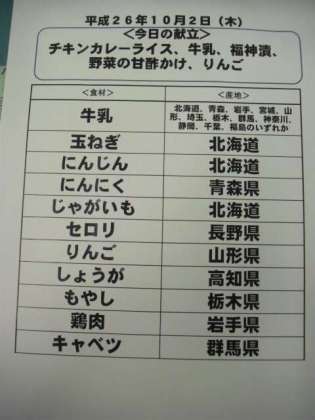 平成26年10月2日（木）
＜今日の献立＞
チキンカレーライス、牛乳、福神漬、
野菜の甘酢かけ、りんご
＜食材＞ ＜産地＞
牛乳 北海道、青森、岩手、宮城、山
形、埼玉、栃木、群馬、神奈川、
静岡、千葉、福島のいずれか
玉ねぎ 北海道
にんじん 北海道
にんにく 青森県
じゃがいも 北海道
セロリ 長野県
りんご 山形県
しょうが 高知県
もやし 栃木県
鶏肉 岩手県
キャベツ 群馬県